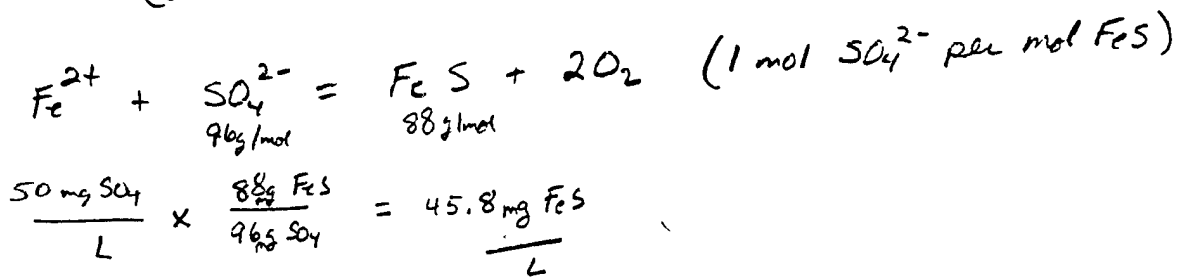 Fe²⁺ + SO₄²⁻ = FeS + 2O₂ (1 mol SO₄²⁻ per mol FeS)
96g/mol 88g/mol
50 mg SO₄ / L × 88g FeS / 96g SO₄ = 45.8 mg FeS / L